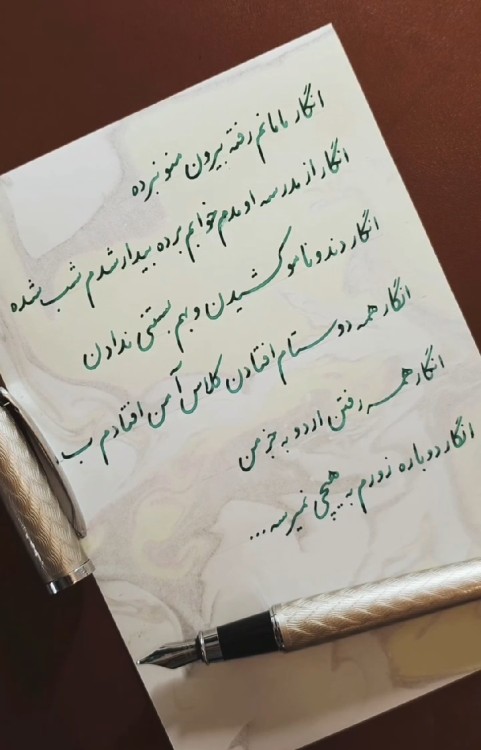 انگار مامانم رفته بیرون منو نبرده
انگار از مدرسه اومدم خوابم برده بیدار شدم شب شده
انگار دندونامو کشیدن و بهم بستنی ندادن
انگار همه دوستام افتادن کلاس آ من افتادم ب.
انگار همه رفتن اردو به جز من
انگار دوباره زورم به هیچی نمیرسه...